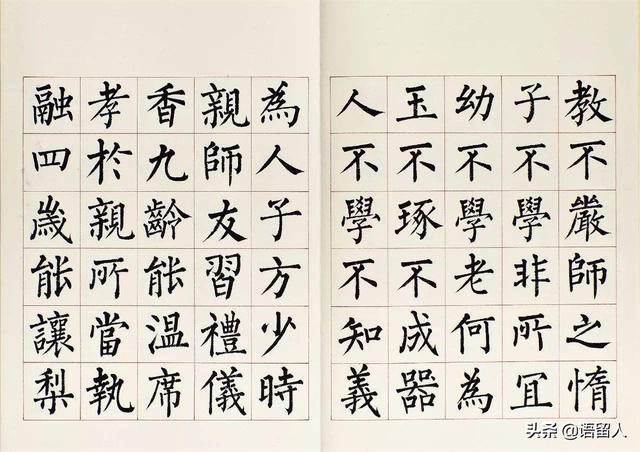 教不嚴師之惰
子不學非所宜
幼不學老何為
玉不琢不成器
人不學不知義
為人子方少時
親師友習禮儀
香九齡能溫席
孝於親所當執
融四歲能讓梨
头条 @语留人